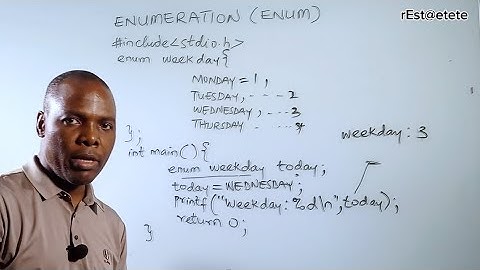 rEst@etete
ENUMERATION (ENUM)
#include<stdio.h>
enum weekday{
MONDAY = 1,
TUESDAY, - - - - 2
WEDNESDAY, - - - 3
THURSDAY - - - 4
};
weekday: 3
int main( ){
enum weekday today;
today = WEDNESDAY;
printf("weekday: %d\n", today);
return 0;
}